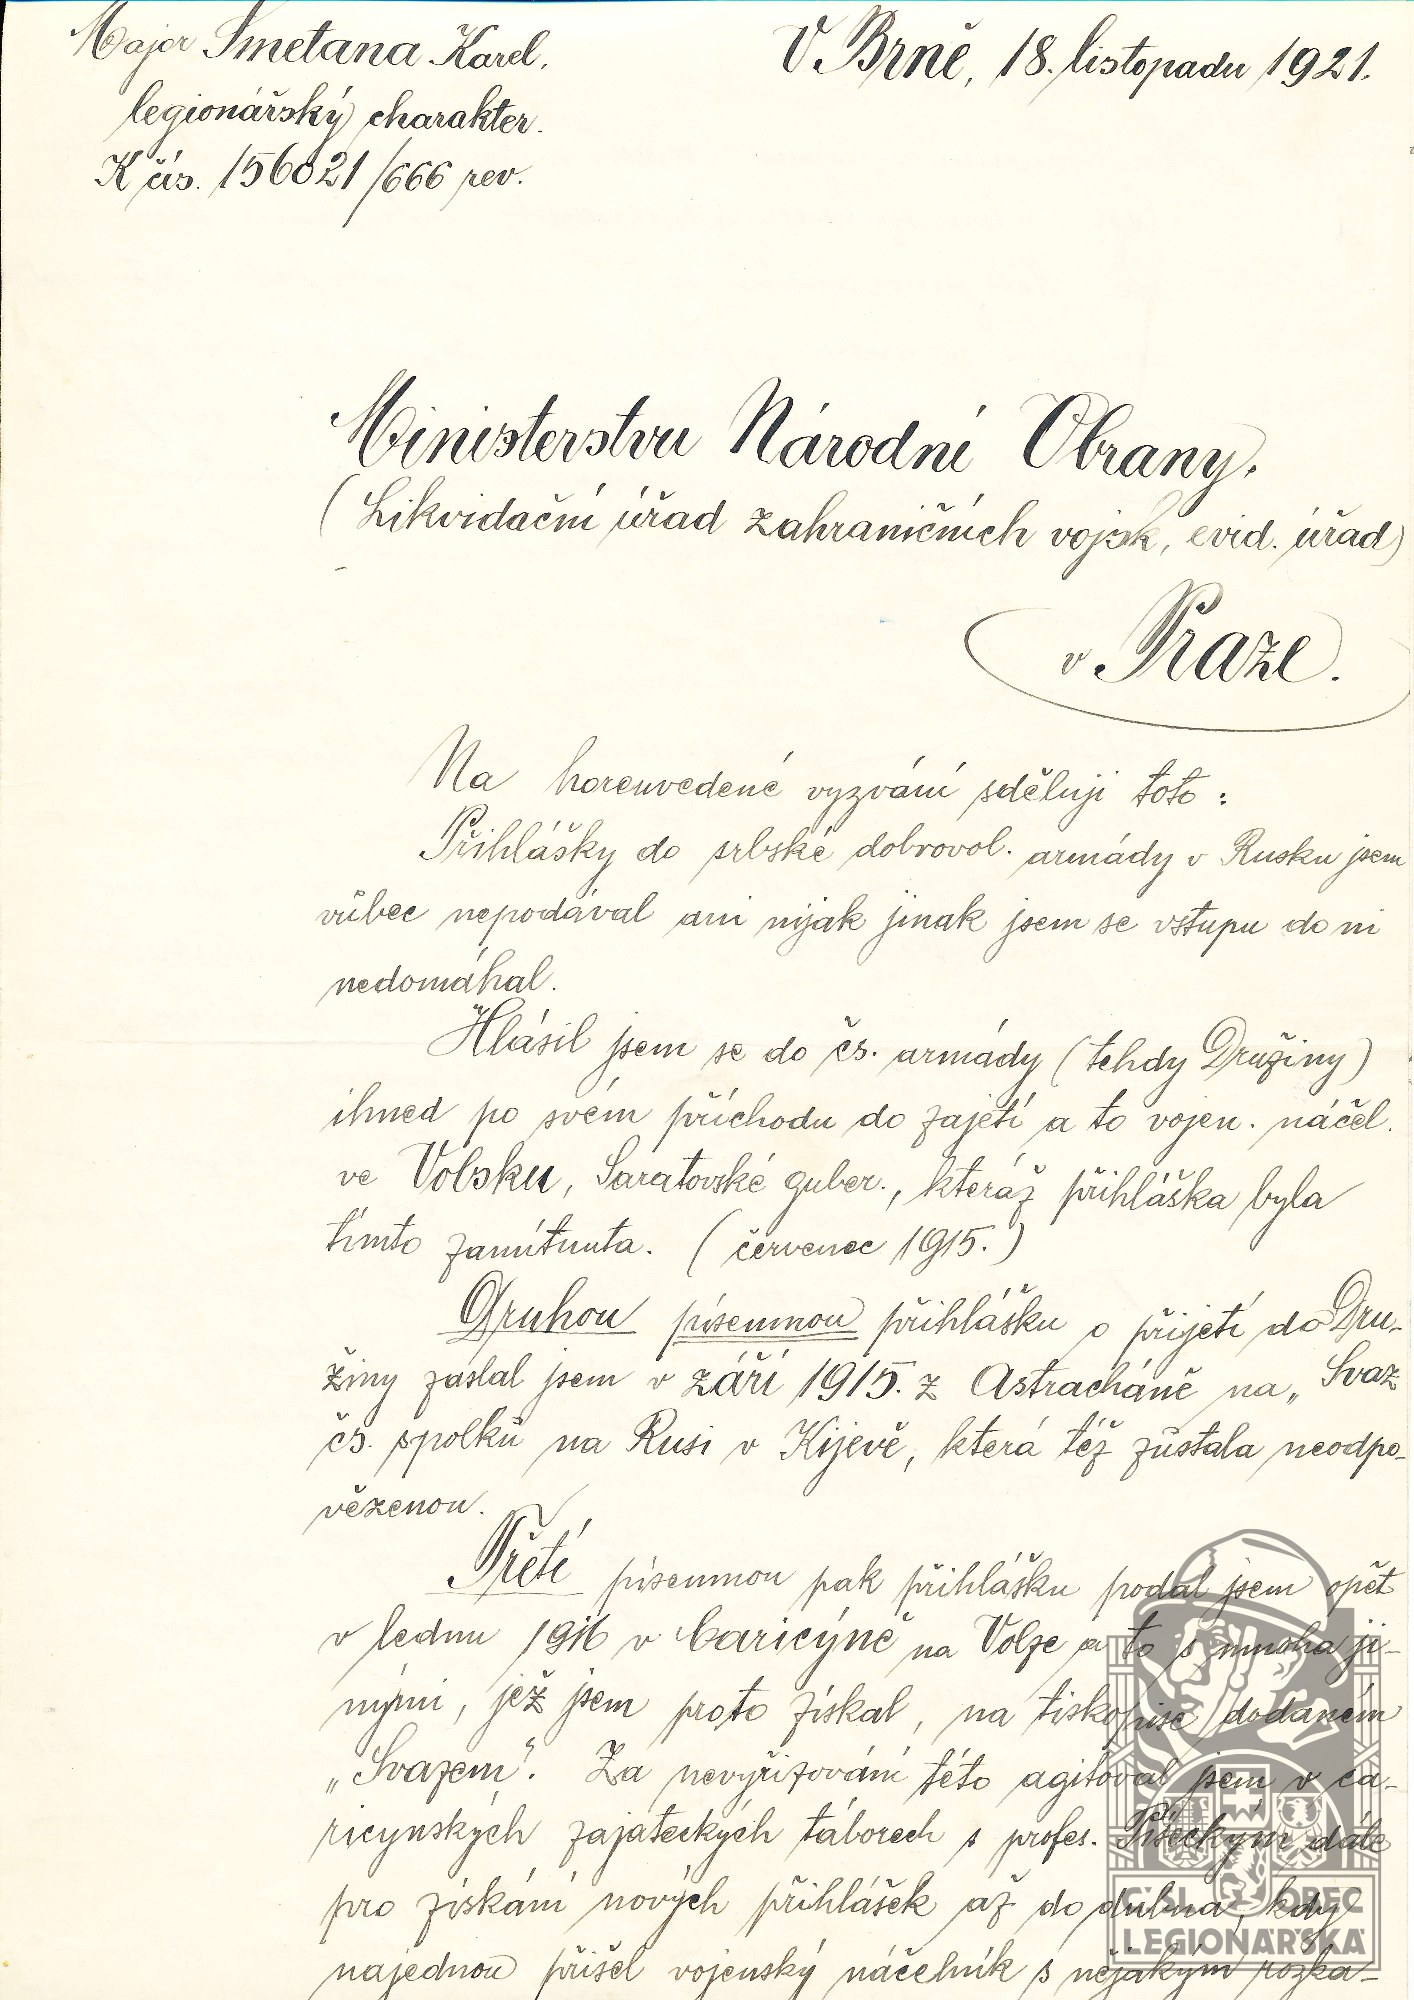 Major Smetana Karel.
V Brně, 18. listopadu 1921.
legionářský charakter.
K čís. 156021/666 rev.
Ministerstvu Národní Obrany.
(Likvidační úřad zahraničních vojsk, evid. úřad)
v Praze.
Na horeuvedené vyzvání sděluji toto:
Přihlášky do srbské dobrovol. armády v Rusku jsem
vůbec nepodával ani nijak jinak jsem se vstupu do ní
nedomáhal.
Hlásil jsem se do čs. armády (tehdy Družiny)
ihned po svém příchodu do zajetí a to vojen. náčel.
ve Volsku, Saratovské guber., kteráž přihláška byla
tímto zamítnuta. (červenec 1915.)
Druhou písemnou přihlášku o přijetí do Dru-
žiny zaslal jsem v září 1915. z Astracháně na „Svaz
čs. spolků na Rusi v Kijevě, která též zůstala neodpo-
vězenou.
Třetí písemnou pak přihlášku podal jsem opět
v lednu 1916 v Caricýně na Volze a to s mnoha ji-
nými, jež jsem proto získal, na tiskopise dodaném
„Svazem“. Za nevyřizování této agitoval jsem v ca-
ricynských zajateckých táborech s profes. Píseckým dále
pro získání nových přihlášek až do dubna, kdy
najednou přišel vojenský náčelník s nějakým rozka-
ČSL. OBEC
LEGIONÁŘSKÁ